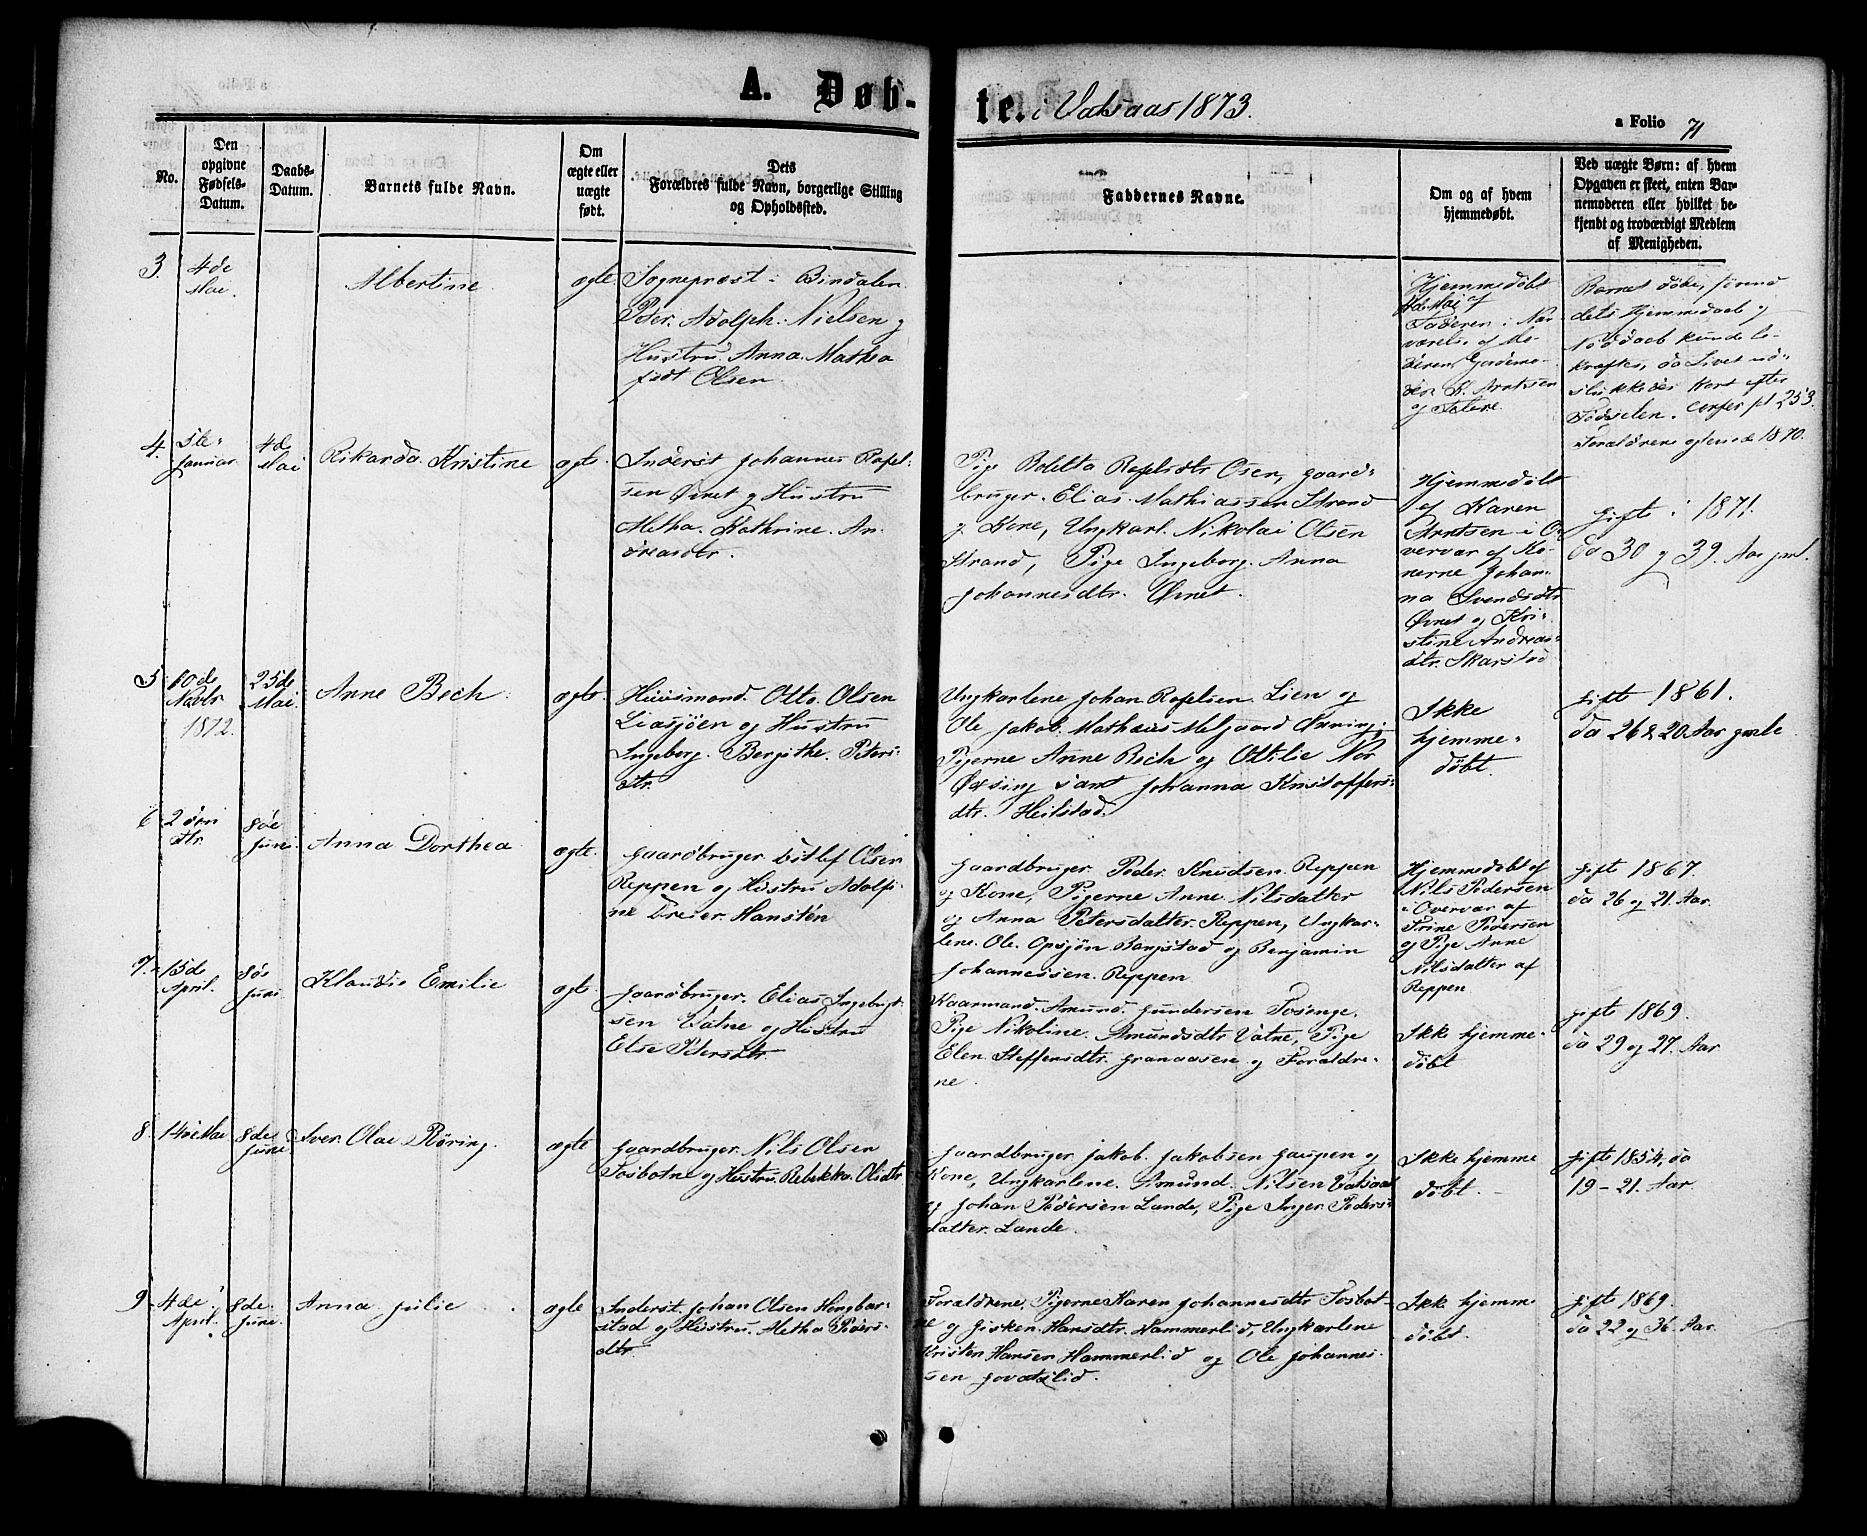 A. Døb-
te. i Vatsaas 1873.
a Folio 71
No.
Den
opgivne
Fødsels-
Datum.
Daabs-
Datum.
Barnets fulde Navn.
Om
ægte eller
uægte
født.
Dets
Forældres fulde Navn, borgerlige Stilling
og Opholdssted.
Faddernes Navne.
Om og af hvem
hjemmedøbt.
Ved uægte Børn: af hvem
Opgaven er skeet, enten Bar-
nemoderen eller hvilket be-
kjendt og troværdigt Medlem
af Menigheden.
3.
4de
Mai.
Albertine
ægte
Sognepræst i Bindalen
Peder Adolph Nielsen og
Hustru Anna Mathea
født Olsen
Hjemmedøbt
4de Mai af
Faderen i Nær-
værelse af Mo-
deren, Gjordemo-
der K. Arntsen
og Flere
Barnet døde, førend
dets Hjemmedaab og
Nøddaab kunde be-
kræftes, da Livet ud-
slukkedes kort efter
Fødselen.
Forældrene gtemde 1870.
4.
5te
Januar
4de
Mai
Rikarda Kristine
ægte
Inderst Johannes Rafel-
sen Ørnet og Hustru
Metha Kathrine An-
dreasdtr.
Pige Boletta Rafelsdtr Osen, Gaard-
bruger Elias Mathiassen Strand
og Kone, Ungkarl Nikolai Olsen
Strand, Pige Ingeborg Anna
Johannesdtr. Ørnet.
Hjemmedøbt
af Karen
Arntsen i O-
vervær af Ko-
nerne Johan-
na Svendsdtr
Ørnet og Kri-
stine Andreas-
dtr. Skarstad
gift i 1871.
da 30 og 39. Aar gml.
5
10de
Novbr
1872.
25de
Mai
Anne Bech
ægte
Huusmand Otto Olsen
Liasjøen og Hustru
Ingeborg Bergithe Peters-
dtr.
Ungkarlene Johan Rafelsen Lien og
Ole Jakob Mathæus Melgaard Øvning;
Pigerne Anne Bech og Ottilie Nor
samt Johanna Kristoffers-
dtr. Heilstad.
Ikke
hjemme-
døbt.
gift 1861.
da 26 & 20 Aar gamle
6
8de
Juni
Anna Dorthea
ægte
Gaardbruger Ditlef Olsen
Reppen og Hustru Adolfi-
ne Dreier Hanstén
Gaardbruger Peder Knudsen Reppen
og Kone, Pigerne Anne Nilsdatter
og Anna Petersdatter Reppen, Ungkar-
lene Ole Opsjøn Bangstad og Benjamin
Johannessen Reppen
Hjemmedøbt af
Nils Pedersen
i Overvær af
Trine Pedersen
og Pige Anne
Nilsdatter af
Reppen
gift 1867.
da 26 og 21. Aar
7.
15de
April.
8de
Juni
Klaudie Emilie
ægte
Gaardbruger Elias Ingebrigt-
sen Vatne og Hustru
Else Petersdtr.
Kaarmand Amund Gundersen Tosenge,
Pige Nikoline Amundsdtr Vatne, Pige
Elen Steffensdtr. Granaasen og Forældre-
ne
Ikke hjemme-
døbt
gift 1869.
da 29 og 27. Aar
8
14de Mai
8de
Juni
Iver Olai Røring
ægte
Gaardbruger Nils Olsen
Tosbotne og Hustru Rebekka Olsdtr
Gaardbruger Jakob Jakobsen Gaupen og
Kone, Ungkarlene Amund Nilsen Vatsaas
og Johan Pedersen Lande, Pige Inger Peders-
datter Lande
Ikke hjemme
døbt.
gift 1854, da
19 - 21. Aar
9
4de
April
8de
Juni
Anna Julie
ægte
Inderst Johan Olsen Hongbar-
stad og Hustru Metha Peders-
dtr
Forældrene, Pigerne Karen Johannesdtr Tosbot-
ne og Gisken Hansdtr. Hammerlid, Ungkarlene
Kristen Hansen Hammerlid og Ole Johannes-
sen
Ikke hjemme
døbt.
gift 1869.
da 22 og 36. Aar.